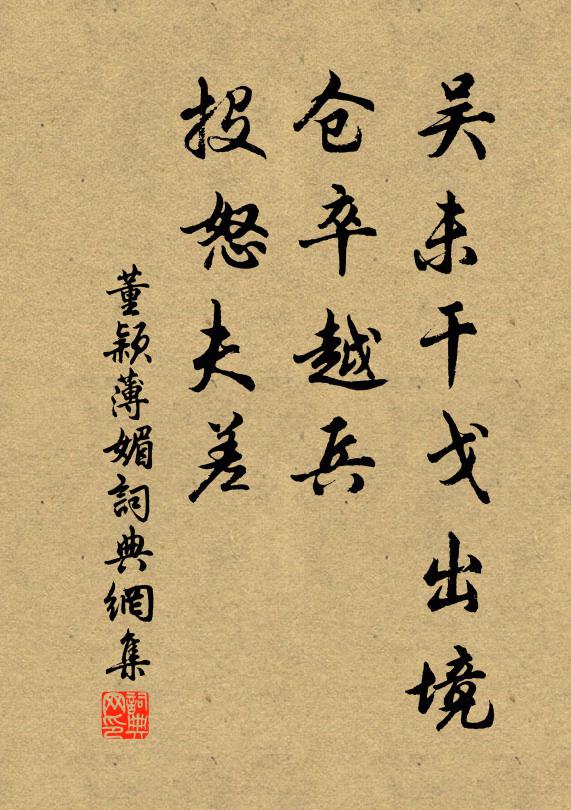 吴未干戈出境
仓卒越兵
投怒夫差
董颖薄媚詞典網集
詞典网印